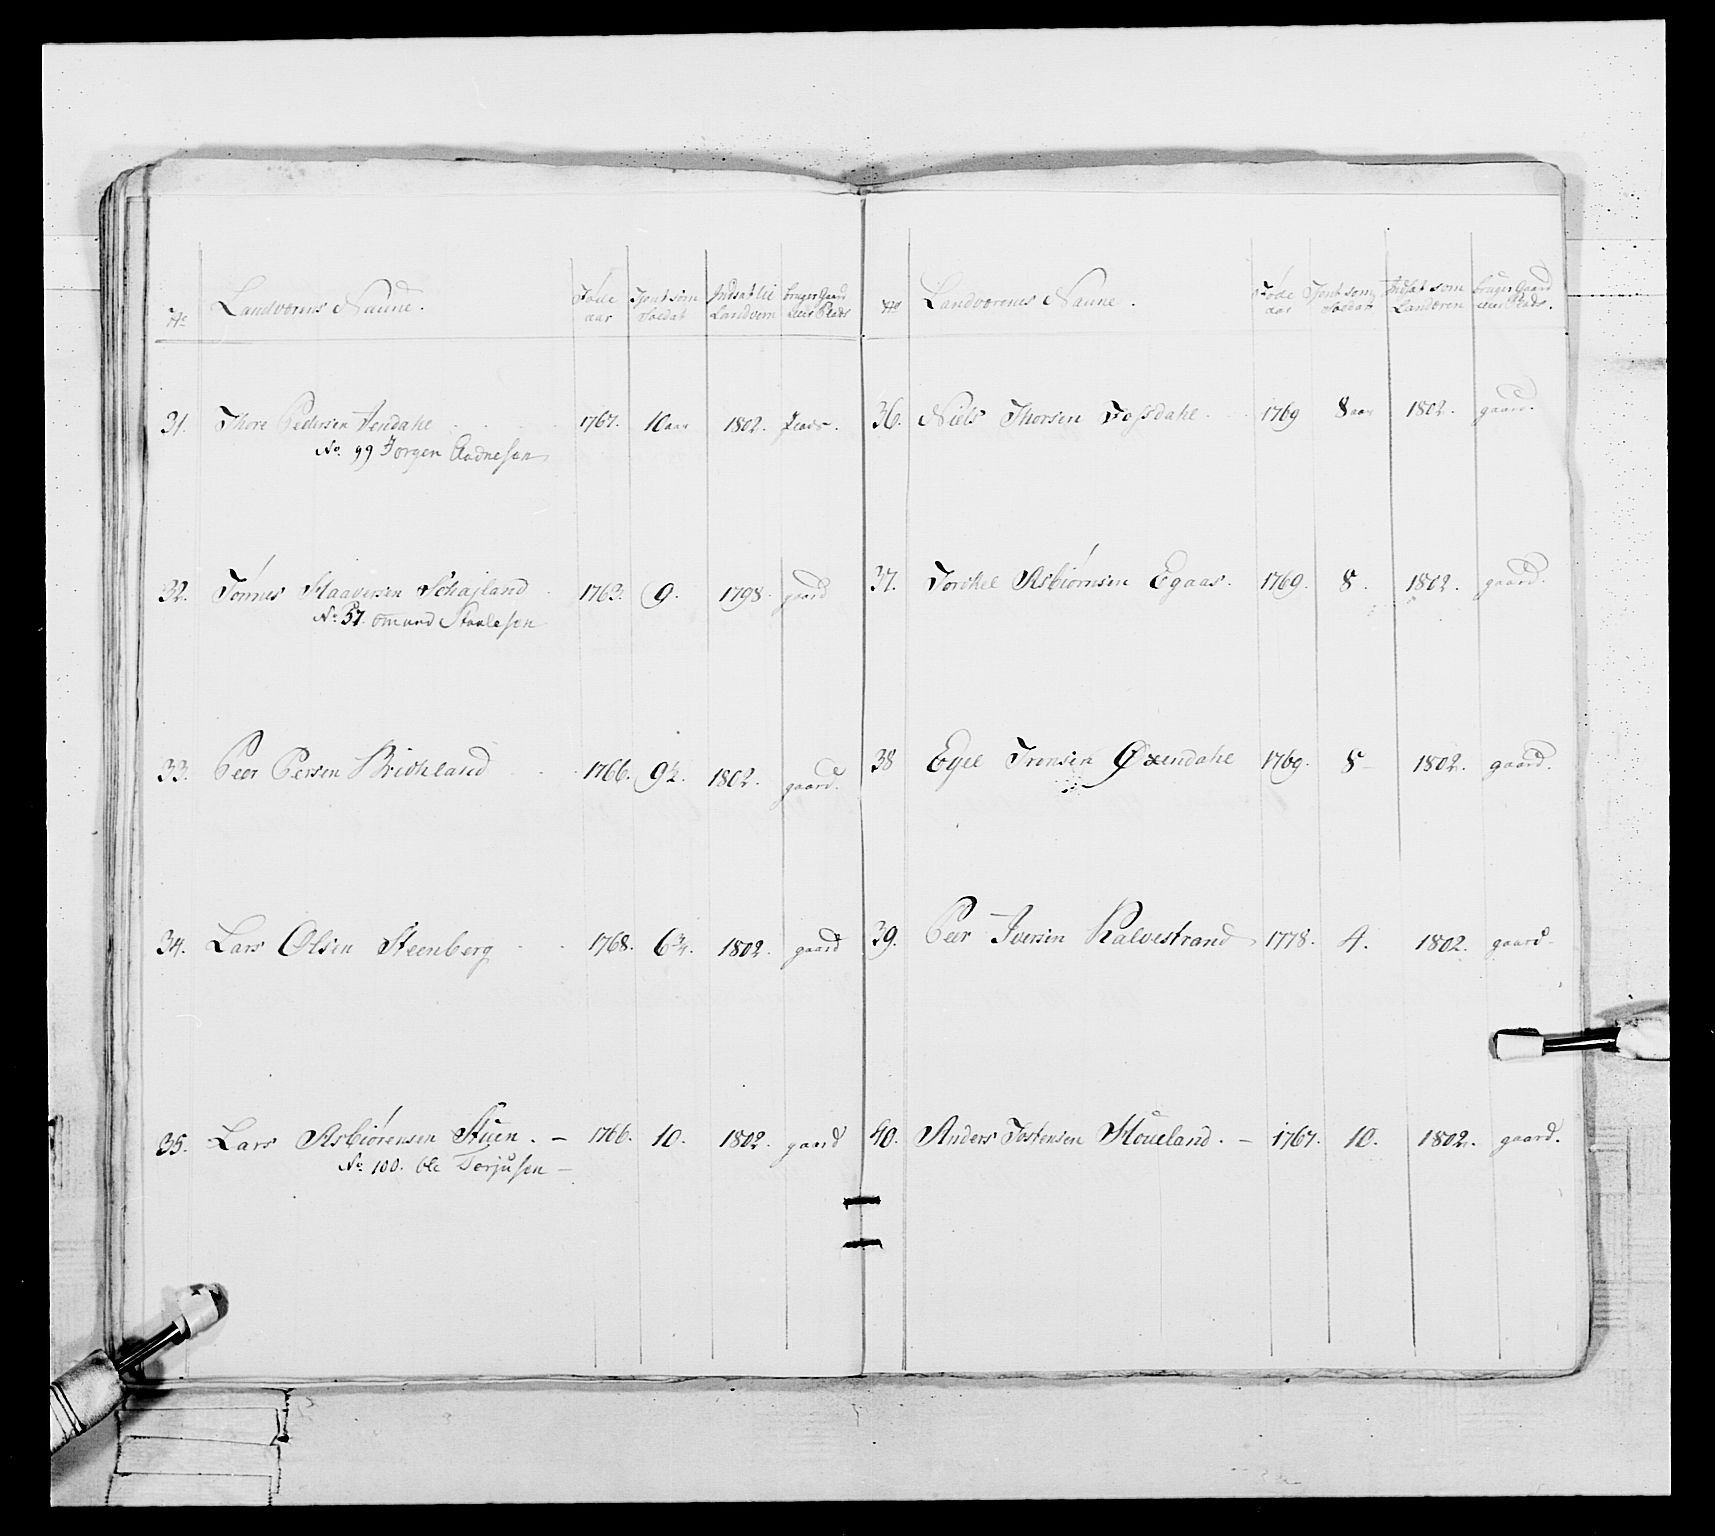 No Landværnes Naune. Føde aar Tjent som Soldat Indsat til Landværn bruger Gaard eller Plads
31. Thore Pedersen Aendahl 1767. 10 aar 1802. plads.
No. 99 Jørgen Aadnesen
32. Tønnes Staaversen Schajland 1763. 9. 1798. gaard
No. 57. omund Staalesen
33. Peer Persen Birchland 1766. 9½. 1802. gaard.
34. Lars Olsen Steenberg 1768. 6¾. 1802. gaard
35. Lars Asbiørensen Stuen. — 1766. 10. 1802. gaard
No. 100. Ole Torjusen —
No Landværnes Naune. Føde aar Tjent som Soldat Indsat som Landværn bruger Gaard eller Plads.
36. Niels Thorsen Fossdahl. 1769 8 aar 1802. gaard.
37. Torchel Asbiørnsen Egaas. 1769. 8. 1802. gaard.
38 Egel Trensen Øxendahl 1769. 8 1802. gaard.
39. Peer Iversen Kalvestrand 1778. 4. 1802. gaard.
40. Anders Tostensen Houeland. — 1767. 10. 1802. gaard.